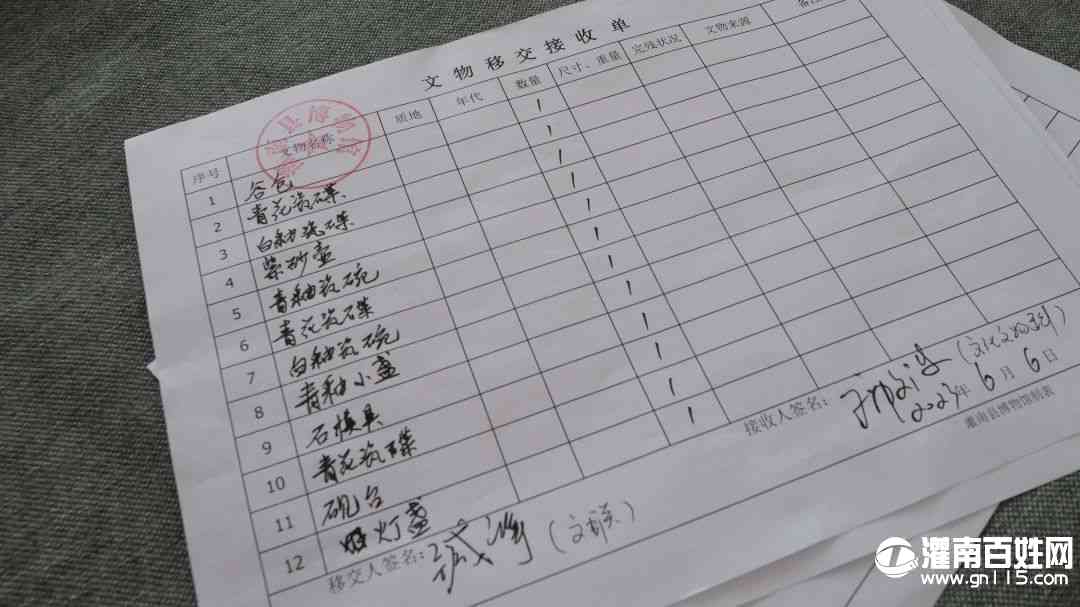 文物移交接收单
序号 文物名称 质地 年代 数量 尺寸、重量 完残状况 文物来源 备注
1 谷仓 1
2 青花瓷碟 1
3 白釉瓷碟 1
4 紫砂壶 1
5 青釉瓷碗 1
6 青花瓷碟 1
7 白釉瓷碗 1
8 青釉小盏 1
9 石模具 1
10 青花瓷碟 1
11 砚台 1
12 灯盏 1
移交人签名： (文联)
接收人签名：
2023年6月6日
灌南县博物馆制表
县博物馆
灌南百姓网
www.gn115.com